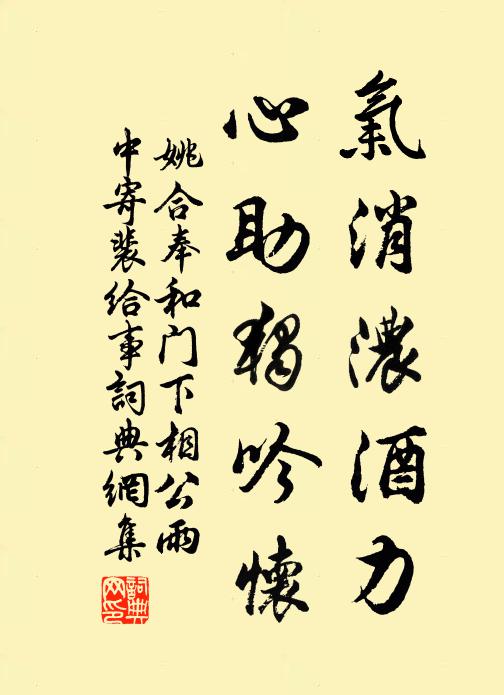 氣消濃酒力
心助獨吟懷
姚合奉和门下相公雨
中寄裴给事詞典網集
詞典網印